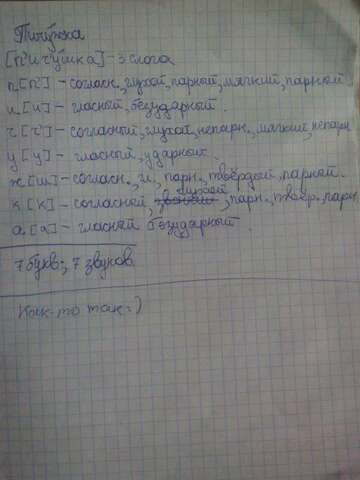 Пичужка
[п'ич'ушка] - 3 слога
п [п'] - согласн., глухой, парный, мягкий, парный
и [и] - гласный, безударный.
ч [ч'] - согласный, глухой, непарн., мягкий, непарн
у [у] - гласный, ударных.
ж [ш] - согласн., парн., твёрдый, парный.
к [к] - согласный, глухой, парн., твер., парн.
а [а] - гласный безударный.
7 букв; 7 звуков
Как-то так =)